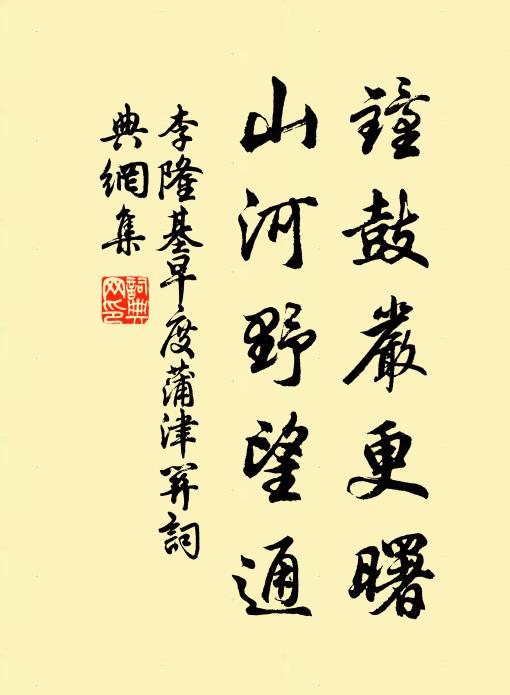 鐘鼓嚴更曙
山河野望通
李隆基早度蒲津關詞
典網集
詞典網印